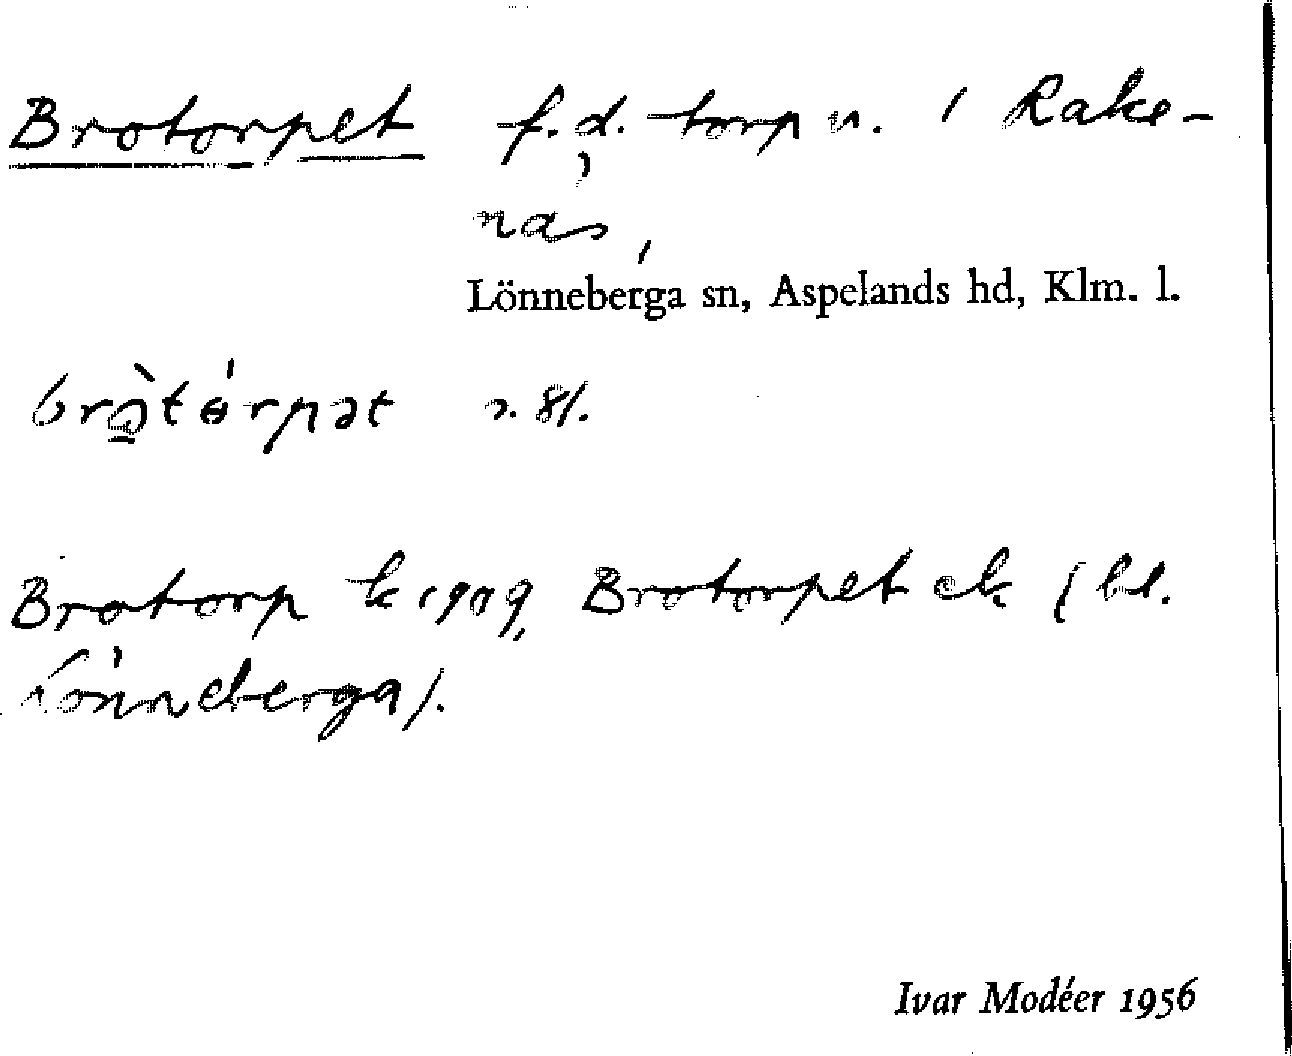 Brotorpet f.d. torp n. i Rake-
näs,
Lönneberga sn, Aspelands hd, Klm. l.
brò̱tɵ́rpət
Brotorp k 1909, Brotorpet ek (bl.
Lönneberga).
Ivar Modéer 1956